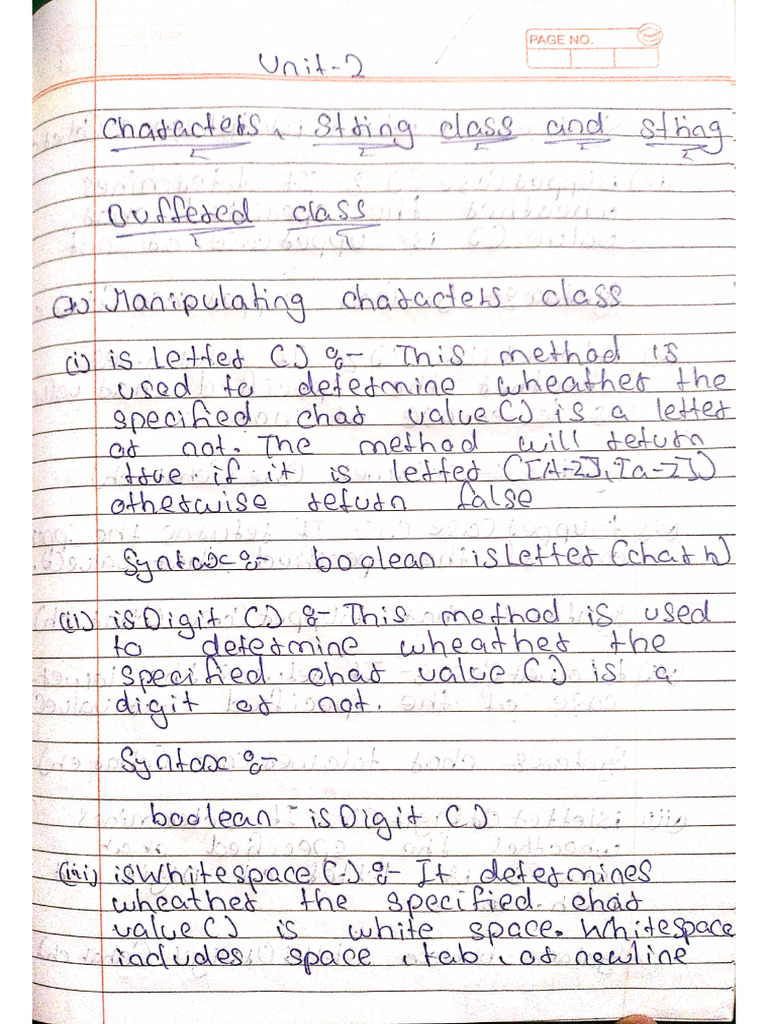 PAGE NO.
Unit-2
Characters, String class and string
Buffered class
(a) Manipulating characters class
(i) is Letter (.) :- This method is
used to determine wheather the
specified char value() is a letter
or not. The method will return
true if it is letter ([A-Z],[a-z])
otherwise return false
Syntax :- boolean isLetter (char h)
(ii) isDigit (.) :- This method is used
to determine wheather the
specified char value (.) is a
digit or not.
Syntax :-
boolean isDigit (.)
(iii) isWhitespace (.) :- It determines
wheather the specified char
value() is white space. Whitespace
includes space, tab, or newline